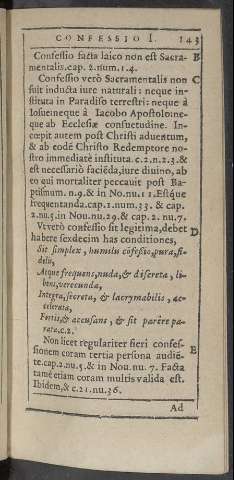 CONFESSIO I. 143
Confessio facta laico non est Sacra- B
mentalis. cap. 2. num. 1. 4.
Confessio verò Sacramentalis non C
fuit inducta iure naturali: neque in-
stituta in Paradiso terrestri: neque à
Iosue: neque à Iacobo Apostolo: ne-
que ab Ecclesiæ consuetudine. In-
cœpit autem post Christi aduentum,
& ab eodē Christo Redemptore no-
stro immediatè instituta. c. 2. n. 2. 3. &
est necessariò faciēda, iure diuino, ab
eo qui mortaliter peccauit post Ba-
ptismum. n. 9. & in No. nu. 11. Estq́ue
frequentanda. cap. 1. num. 33. & cap.
2. nu. 5. in Nou. nu. 29. & cap. 2. nu. 7.
Vt verò confessio sit legitima, debet D
habere sexdecim has conditiones,
Sit simplex, humilis cōfessio, pura, fi-
delis,
Atque frequens, nuda, & discreta, li-
bens, verecunda,
Integra, secreta, & lacrymabilis, ac-
celerata,
Fortis, & accusans, & sit parêre pa-
rata. c. 2.
Non licet regulariter fieri confes- E
sionem coram tertia persona audiē-
te. cap. 2. nu. 5. & in Nou. nu. 7. Facta
tamē etiam coram multis valida est.
Ibidem, & c. 21. nu. 36.
Ad